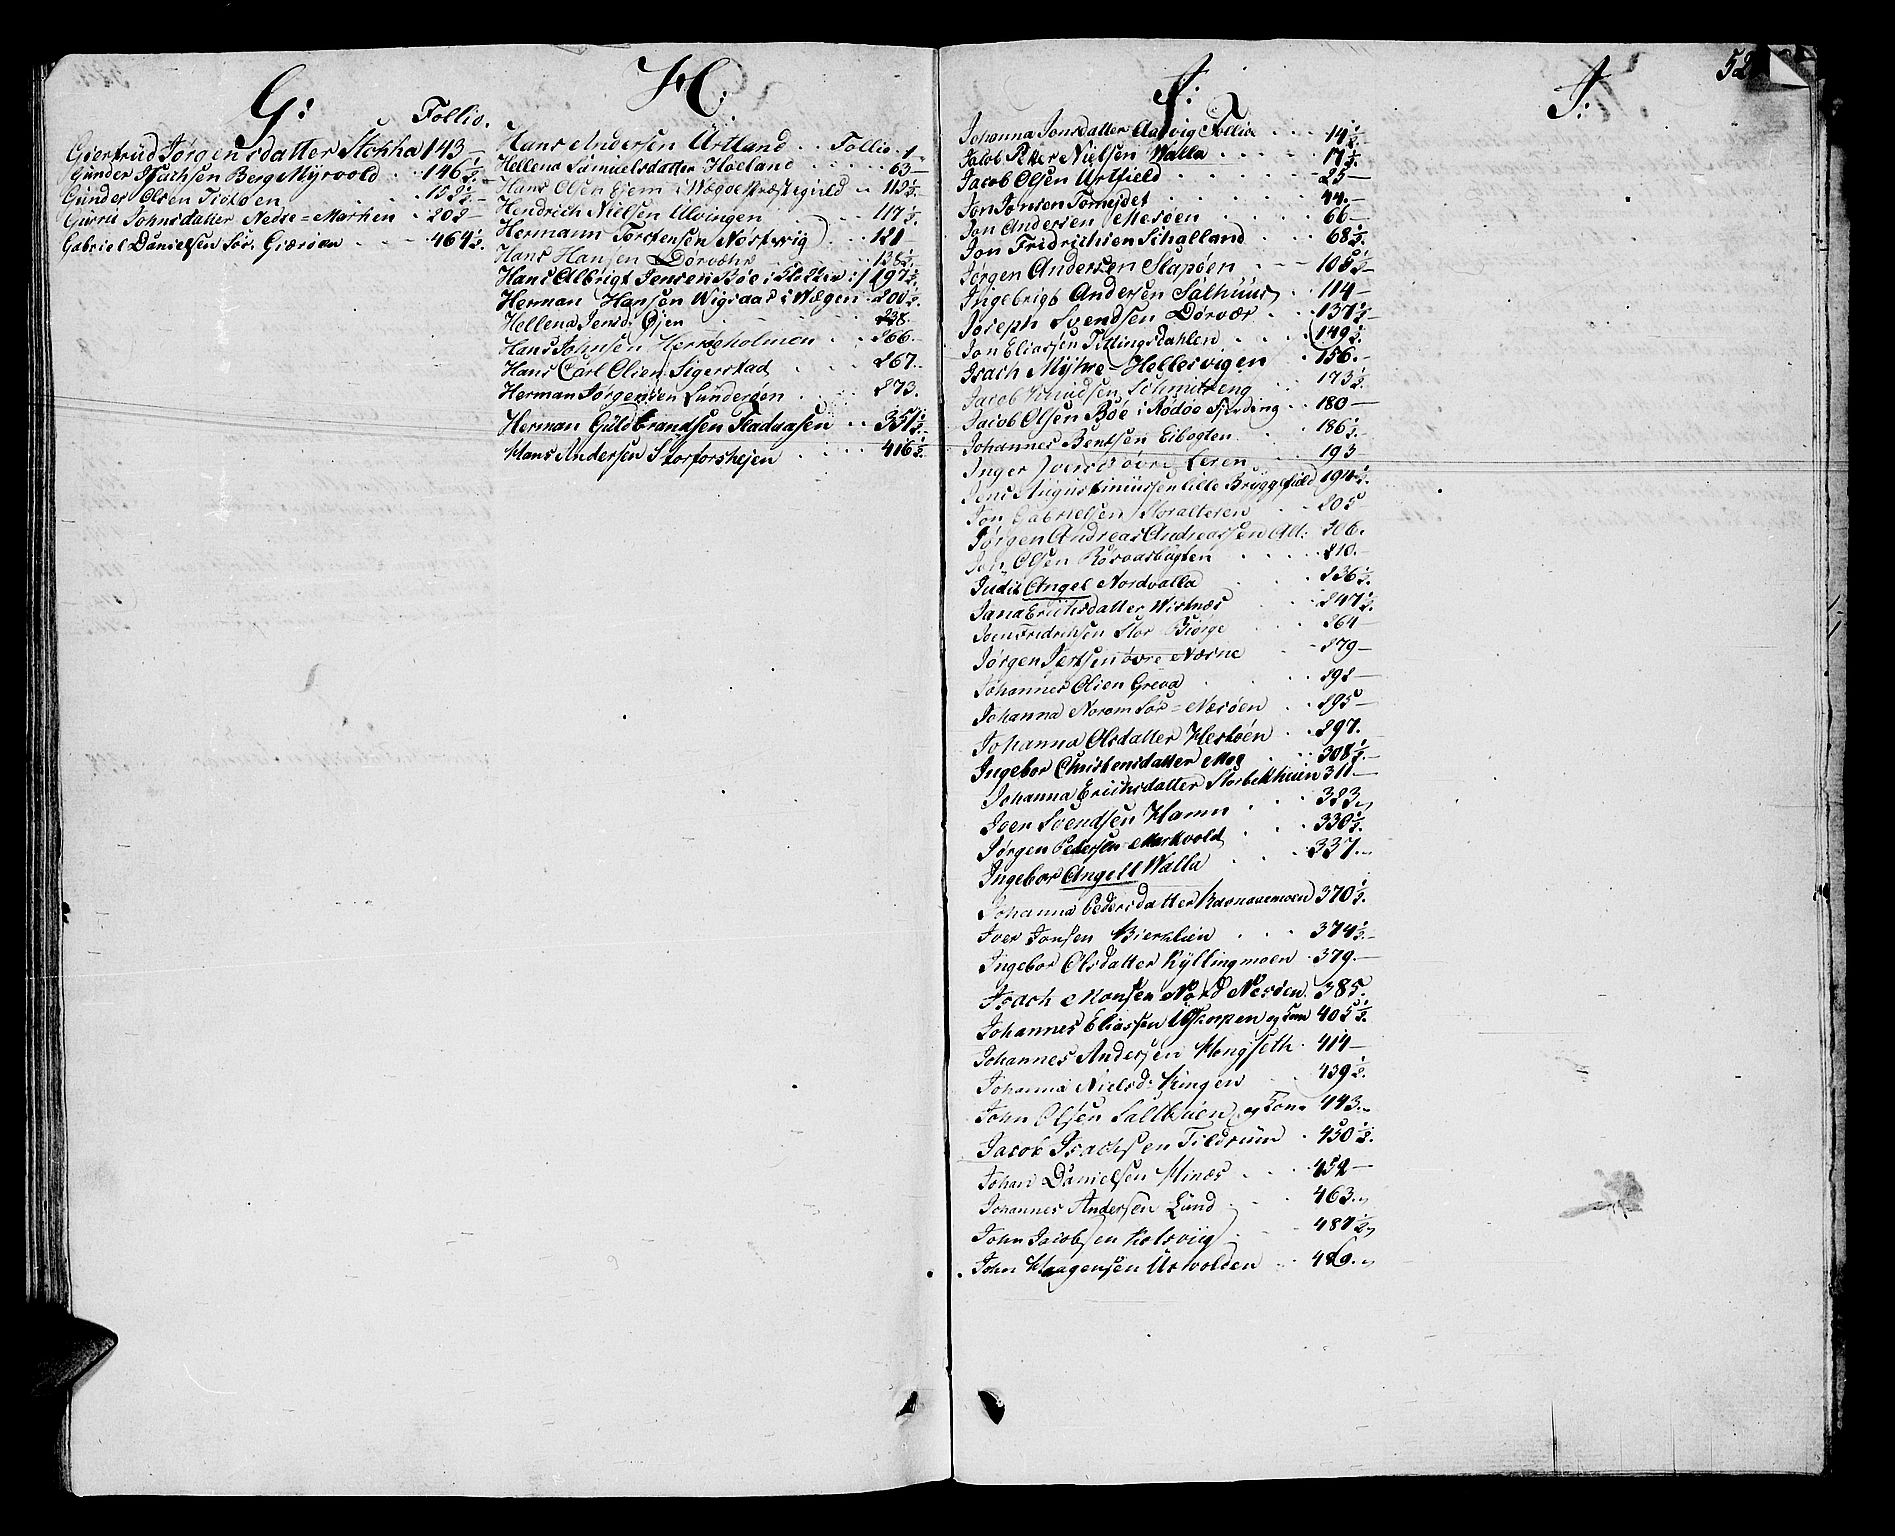 G:
Follio.
Giertrud Jørgensdatter Stokka 143 —
Gunder Isachsen Berg Myrvold . . 146½
Gunder Olsen Tiøtøen . . 152½ —
Gurru Johnsdatter Nedre=Marken . 202 —
Gabriel Danielsen Sør. Gierøen . . . 464½.
H:
Hans Andersen Urtland . . Follio 1 —
Hellena Samuelsdatter Høeland . . . 63 —
Hans Olsen Præstegield . . 112½.
Hendrich Nielsen Ulvingen . . . 117½.
Hermann Torstensen Nøstvig . . . 121
Hans Hansen Dorvær . . . 138½.
Hans Albrigt Jensen Bøe i :/ 197½
Herman Hansen Wigsaas i Wægen . 200½.
Hellena Jensd: Øjen . . . 238.
Hans Johnsen Herrøeholmen . . 266. —
Hans Carl Olsen Sigerstad . . . 267. —
Herman Jørgensen Lunderøen . . . 273.
Herman Guldbrandsen Fladaasen . . 357½
Hans Andersen Storforshejen . . . 416½.
J:
52
Johanna Jonsdatter Aasvig Follio . . . 14½.
Jacob Peter Nielsen Walla . . . 17½.
Jacob Olsen Urtfield . . . 25 —
Jon Jonsen Fornejdet . . . 44. —
Jon Andersen Mesøen . . . 66 —
Jon Fridrichsen Schalland . . . 68½
Jørgen Andersen Slapøen . . . 105½ —
Ingebrigt Andersen Salhuus . . 114 —
Joseph Svendsen Dorvær . . 137½ —
Jon Eliassen Tillingsdahlen . . . 149½.
Isach Myhre Hellesvigen . 156. —
Jacob Knudsen Schmitseng . . . 173½.
Jacob Olsen Bøe i Rødøe Fjerding . . 180 —
Johannes Bentsen Eibogten . . . 186½. —
Inger Iversd: øvre Leren . . 193
Jens Augustiniussen Lille Bryggefield 194½.
Jon Gabrielsen Storalteren . . 205 —
Jørgen Andreas Andreassen Alt: 206.
Jon Olsen Røsvasbugten . . . 210. —
Judit Angel Nordvalla . . 236½.
Jana Erichsdatter Wistnæs . . . 247½.
Joen Fridrichsen Stor Biørge . . . 264 —
Jørgen Jertsen øvre Næsne . . 279 —
Johannes Olsen Greva . . . 292 —
Johanna Norom Sør=Næsøen . . 295 —
Johanna Olsdatter Hestøen . . 297.
Ingebor Christensdatter Moe . . . 308½. —
Johanna Erichsdatter Storbekhuien 311 —
Iver Svendsen Hamn . . . 323
Jørgen Pedersen Markvold . . . 330½.
Ingebor Angell Walla . . . 337. —
Johanna Pedersdatter 370½.
Iver Jonsen Bierklien . . . 374½. —
Ingebor Olsdatter Kyllingmoen . 379. —
Isach Monsen Nord Nesøen . 385.
Johannes Eliassen og Kone 405½.
Johannes Andersen Kongseth . 414 —
Johanna Nielsd: Kingen . . 439½.
John Olsen Saltbuen og Kone 443.
Jacob Isachsen Tildrum . 450½.
Johan Danielsen Hinæs . . . 452 —
Johannes Andersen Lund . . . 463.
John Jacobsen Holsviig . . . 487½
John Haagensen Urvolden . . 489.
J: